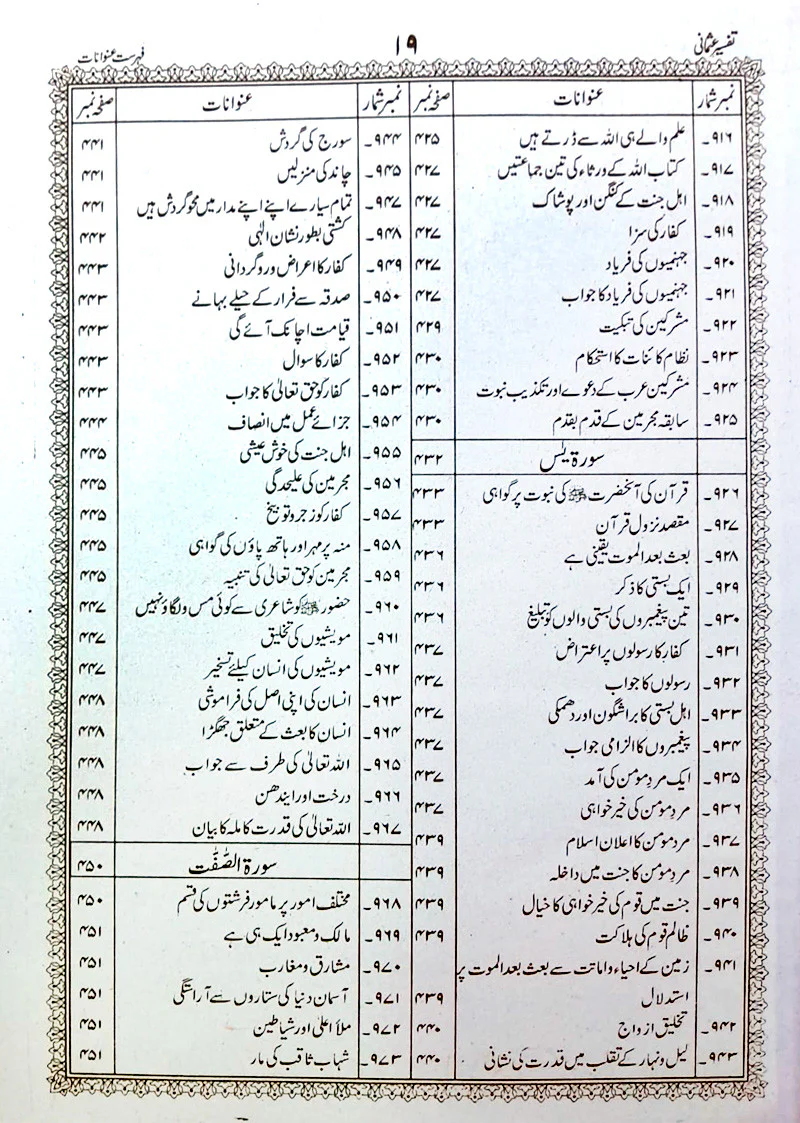 تفسیر عثمانی ۱۹ فہرست عنوانات
نمبر شمار عنوانات صفحہ نمبر
۹۱۶۔ علم والے ہی اللہ سے ڈرتے ہیں ۴۲۵
۹۱۷۔ کتاب اللہ کے ورثاء کی تین جماعتیں ۴۲۷
۹۱۸۔ اہل جنت کے کنگن اور پوشاک ۴۲۷
۹۱۹۔ کفار کی سزا ۴۲۷
۹۲۰۔ جہنمیوں کی فریاد ۴۲۷
۹۲۱۔ جہنمیوں کی فریاد کا جواب ۴۲۷
۹۲۲۔ مشرکین کی تبکیت ۴۲۹
۹۲۳۔ نظام کائنات کا استحکام ۴۳۰
۹۲۴۔ مشرکین عرب کے دعوے اور تکذیب نبوت ۴۳۰
۹۲۵۔ سابقہ مجرمین کے قدم بقدم ۴۳۰
سورۃ یٰس ۴۳۲
۹۲۶۔ قرآن کی آنحضرت ﷺ کی نبوت پر گواہی ۴۳۳
۹۲۷۔ مقصد نزول قرآن ۴۳۳
۹۲۸۔ بعث بعد الموت یقینی ہے ۴۳۶
۹۲۹۔ ایک بستی کا ذکر ۴۳۶
۹۳۰۔ تین پیغمبروں کی بستی والوں کو تبلیغ ۴۳۶
۹۳۱۔ کفار کا رسولوں پر اعتراض ۴۳۷
۹۳۲۔ رسولوں کا جواب ۴۳۷
۹۳۳۔ اہل بستی کا برا شگون اور دھمکی ۴۳۷
۹۳۴۔ پیغمبروں کا الزامی جواب ۴۳۷
۹۳۵۔ ایک مردِ مومن کی آمد ۴۳۷
۹۳۶۔ مردِ مومن کی خیر خواہی ۴۳۷
۹۳۷۔ مردِ مومن کا اعلان اسلام ۴۳۹
۹۳۸۔ مردِ مومن کا جنت میں داخلہ ۴۳۹
۹۳۹۔ جنت میں قوم کی خیر خواہی کا خیال ۴۳۹
۹۴۰۔ ظالم قوم کی ہلاکت ۴۳۹
۹۴۱۔ زمین کے احیاء و اماتت سے بعث بعد الموت پر
استدلال ۴۳۹
۹۴۲۔ تخلیق ازواج ۴۴۰
۹۴۳۔ لیل و نہار کے تقلب میں قدرت کی نشانی ۴۴۰
نمبر شمار عنوانات صفحہ نمبر
۹۴۴۔ سورج کی گردش ۴۴۱
۹۴۵۔ چاند کی منزلیں ۴۴۱
۹۴۷۔ تمام سیارے اپنے اپنے مدار میں محو گردش ہیں ۴۴۱
۹۴۸۔ کشتی بطور نشان الٰہی ۴۴۲
۹۴۹۔ کفار کا اعراض و روگردانی ۴۴۳
۹۵۰۔ صدقہ سے فرار کے حیلے بہانے ۴۴۳
۹۵۱۔ قیامت اچانک آئے گی ۴۴۳
۹۵۲۔ کفار کا سوال ۴۴۳
۹۵۳۔ کفار کو حق تعالیٰ کا جواب ۴۴۳
۹۵۴۔ جزائے عمل میں انصاف ۴۴۴
۹۵۵۔ اہل جنت کی خوش عیشی ۴۴۵
۹۵۶۔ مجرمین کی علیحدگی ۴۴۵
۹۵۷۔ کفار کو زجر و توبیخ ۴۴۵
۹۵۸۔ منہ پر مہر اور ہاتھ پاؤں کی گواہی ۴۴۵
۹۵۹۔ مجرمین کو حق تعالیٰ کی تنبیہ ۴۴۵
۹۶۰۔ حضور ﷺ کو شاعری سے کوئی مس ولگاؤ نہیں ۴۴۷
۹۶۱۔ مویشیوں کی تخلیق ۴۴۷
۹۶۲۔ مویشیوں کی انسان کیلئے تسخیر ۴۴۷
۹۶۳۔ انسان کی اپنی اصل کی فراموشی ۴۴۸
۹۶۴۔ انسان کا بعث کے متعلق جھگڑا ۴۴۸
۹۶۵۔ اللہ تعالیٰ کی طرف سے جواب ۴۴۸
۹۶۶۔ درخت اور ایندھن ۴۴۸
۹۶۷۔ اللہ تعالیٰ کی قدرت کاملہ کا بیان ۴۴۸
سورۃ الصّٰفّٰت ۴۵۰
۹۶۸۔ مختلف امور پر مامور فرشتوں کی قسم ۴۵۰
۹۶۹۔ مالک و معبود ایک ہی ہے ۴۵۱
۹۷۰۔ مشارق و مغارب ۴۵۱
۹۷۱۔ آسمان دنیا کی ستاروں سے آراستگی ۴۵۱
۹۷۲۔ ملأ اعلیٰ اور شیاطین ۴۵۱
۹۷۳۔ شہاب ثاقب کی مار ۴۵۱